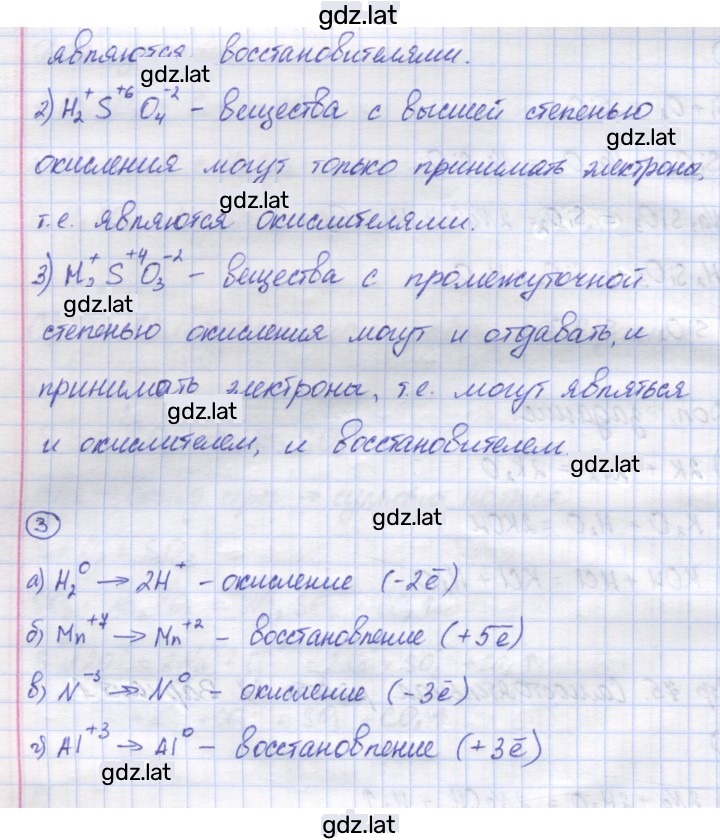 gdz.lat
являются восстановителями.
gdz.lat
2) H₂⁺ S⁺⁶ O₄⁻² - вещества с высшей степенью
gdz.lat
окисления могут только принимать электроны,
gdz.lat
т.е. являются окислителями.
3) H₂⁺ S⁺⁴ O₃⁻² - вещества с промежуточной
gdz.lat
степенью окисления могут и отдавать, и
принимать электроны, т.е. могут являться
gdz.lat
и окислителем, и восстановителем.
gdz.lat
3
gdz.lat
а) H₂⁰ → 2H⁺ - окисление (-2ē)
б) Mn⁺⁷ → Mn⁺² - восстановление (+5ē)
в) N⁻³ → N⁰ - окисление (-3ē)
г) Al⁺³ → Al⁰ - восстановление (+3ē)
gdz.lat
gdz.lat